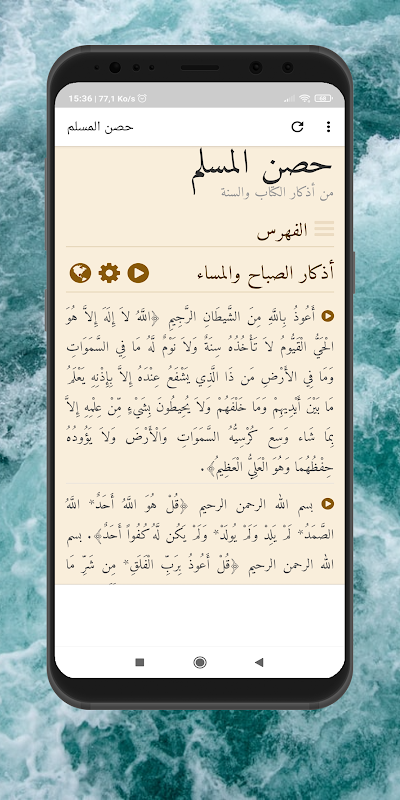 15:36 | 77,1 Ko/s
حصن المسلم
حصن المسلم
من أذكار الكتاب والسنة
الفهرس
أذكار الصباح والمساء
أَعُوذُ بِاللَّهِ مِنَ الشَّيطَانِ الرَّجِيمِ ﴿اللَّهُ لاَ إِلَهَ إِلاَّ هُوَ
الْحَيُّ الْقَيُّومُ لاَ تَأْخُذُهُ سِنَةٌ وَلاَ نَوْمٌ لَّهُ مَا فِي السَّمَوَاتِ
وَمَا فِي الأَرْضِ مَن ذَا الَّذِي يَشْفَعُ عِنْدَهُ إِلاَّ بِإِذْنِهِ يَعْلَمُ
مَا بَيْنَ أَيْدِيهِمْ وَمَا خَلْفَهُمْ وَلاَ يُحِيطُونَ بِشَيْءٍ مِّنْ عِلْمِهِ إِلاَّ
بِمَا شَاء وَسِعَ كُرْسِيُّهُ السَّمَوَاتِ وَالْأَرْضَ وَلاَ يَؤُودُهُ
حِفْظُهُمَا وَهُوَ الْعَلِيُّ الْعَظِيمُ﴾.
بسم الله الرحمن الرحيم ﴿قُلْ هُوَ اللَّهُ أَحَدٌ* اللَّهُ
الصَّمَدُ* لَمْ يَلِدْ وَلَمْ يُولَدْ* وَلَمْ يَكُن لَّهُ كُفُواً أَحَدٌ﴾. بسم
الله الرحمن الرحيم ﴿قُلْ أَعُوذُ بِرَبِّ الْفَلَقِ* مِن شَرِّ مَا